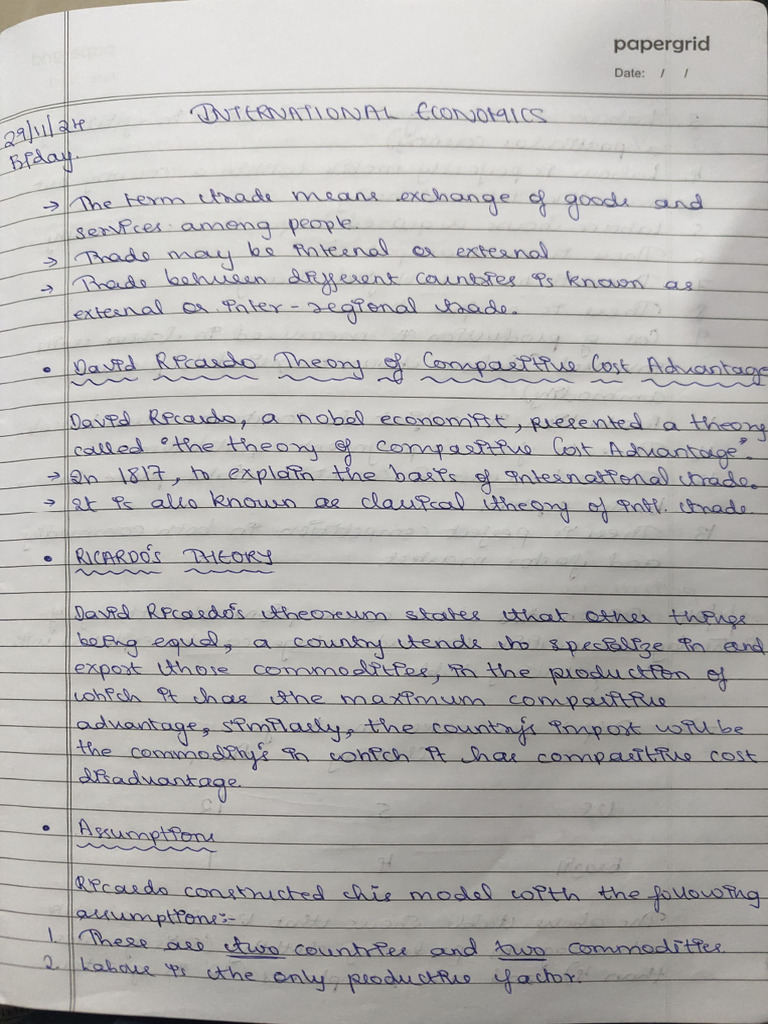 papergrid
Date: / /
INTERNATIONAL ECONOMICS
29/11/24
Friday.
→ The term trade means exchange of goods and
services among people.
→ Trade may be internal or external
→ Trade between different countries is known as
external or inter-regional trade.
• David Ricardo Theory of Comparitive Cost Advantage
David Ricardo, a nobel economist, presented a theory
called "the theory of comparitive Cost Advantage".
→ In 1817, to explain the basis of international trade.
→ It is also known as classical theory of intl. trade
• RICARDO'S THEORY
David Ricardo's theoreum states that other things
being equal, a country tends to specialize in and
export those commodities, in the production of
which it has the maximum comparitive
advantage, similarly, the country's import will be
the commodity's in which it has comparitive cost
disadvantage.
• Assumptions
Ricardo constructed his model with the following
assumptions:-
1. There are two countries and two commodities.
2. Labour is the only productive factor.